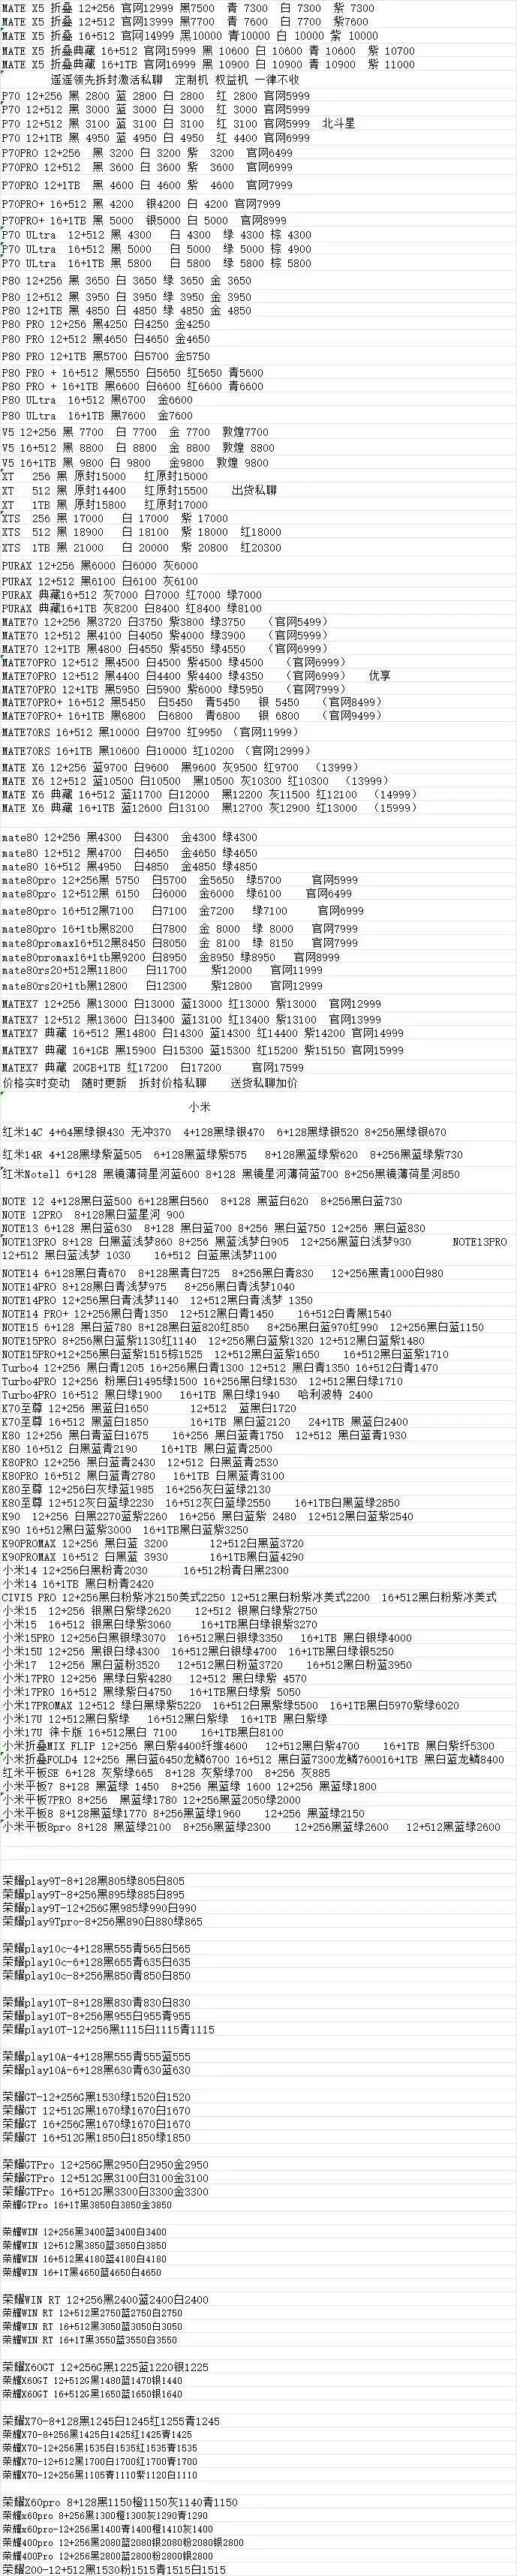 MATE X5 折叠 12+256 官网12999 黑7500 青 7300 白 7300 紫 7300
MATE X5 折叠 12+512 官网13999 黑7700 青 7600 白 7700 紫7600
MATE X5 折叠 16+512 官网14999 黑10000 青10000 白 10000 紫 10000
MATE X5 折叠典藏 16+512 官网15999 黑 10600 白 10600 青 10600 紫 10700
MATE X5 折叠典藏 16+1TB 官网16999 黑 10900 白 10900 青 10900 紫 11000
遥遥领先拆封激活私聊 定制机 权益机 一律不收
P70 12+256 黑 2800 蓝 2800 白 2800 红 2800 官网5999
P70 12+512 黑 3000 蓝 3000 白 3000 红 3000 官网5999
P70 12+512 黑 3100 蓝 3100 白 3100 红 3100 官网5999 北斗星
P70 12+1TB 黑 4950 蓝 4950 白 4950 红 4400 官网6999
P70PRO 12+256 黑 3200 白 3200 紫 3200 官网6499
P70PRO 12+512 黑 3600 白 3600 紫 3600 官网6999
P70PRO 12+1TB 黑 4600 白 4600 紫 4600 官网7999
P70PRO+ 16+512 黑 4200 银4200 白 4200 官网7999
P70PRO+ 16+1TB 黑 5000 银5000 白 5000 官网8999
P70 ULtra 12+512 黑 4300 白 4300 绿 4300 棕 4300
P70 ULtra 16+512 黑 5000 白 5000 绿 5000 棕 4900
P70 ULtra 16+1TB 黑 5800 白 5800 绿 5800 棕 5800
P80 12+256 黑 3650 白 3650 绿 3650 金 3650
P80 12+512 黑 3950 白 3950 绿 3950 金 3950
P80 12+1TB 黑 4850 白 4850 绿 4850 金 4850
P80 PRO 12+256 黑4250 白4250 金4250
P80 PRO 12+512 黑4650 白4650 金4650
P80 PRO 12+1TB 黑5700 白5700 金5750
P80 PRO + 16+512 黑5550 白5650 红5650 青5600
P80 PRO + 16+1TB 黑6600 白6600 红6600 青6600
P80 ULtra 16+512 黑6700 金6600
P80 ULtra 16+1TB 黑7600 金7600
V5 12+256 黑 7700 白 7700 金 7700 敦煌7700
V5 16+512 黑 8800 白 8800 金 8800 敦煌 8800
V5 16+1TB 黑 9800 白 9800 金9800 敦煌 9800
XT 256 黑 原封15000 红原封15000
XT 512 黑 原封14400 红原封15500 出货私聊
XT 1TB 黑 原封15800 红原封17000
XTS 256 黑 17000 白 17000 紫 17000
XTS 512 黑 18900 白 18100 紫 18000 红18000
XTS 1TB 黑 21000 白 20000 紫 20800 红20300
PURAX 12+256 黑6000 白6000 灰6000
PURAX 12+512 黑6100 白6100 灰6100
PURAX 典藏16+512 灰7000 白7000 红7000 绿7000
PURAX 典藏16+1TB 灰8200 白8400 红8400 绿8100
MATE70 12+256 黑3720 白3750 紫3800 绿3750 （官网5499）
MATE70 12+512 黑4100 白4050 紫4000 绿3900 （官网5999）
MATE70 12+1TB 黑4800 白4550 紫4550 绿4550 （官网6999）
MATE70PRO 12+512 黑4500 白4500 紫4500 绿4500 （官网6999）
MATE70PRO 12+512 黑4400 白4400 紫4400 绿4350 （官网6999） 优享
MATE70PRO 12+1TB 黑5950 白5900 紫6000 绿5950 （官网7999）
MATE70PRO+ 16+512 黑5450 白5450 青5450 银 5450 （官网8499）
MATE70PRO+ 16+1TB 黑6800 白6800 青6800 银 6800 （官网9499）
MATE70RS 16+512 黑10000 白9700 红9950 （官网11999）
MATE70RS 16+1TB 黑10600 白10000 红10200 （官网12999）
MATE X6 12+256 蓝9700 白9600 黑9600 灰9500 红9700 （13999）
MATE X6 12+512 蓝10500 白10500 黑10500 灰10300 红10300 （13999）
MATE X6 典藏 16+512 蓝11700 白12000 黑12200 灰11500 红12100 （14999）
MATE X6 典藏 16+1TB 蓝12600 白13100 黑12700 灰12900 红13000 （15999）
mate80 12+256 黑4300 白4300 金4300 绿4300
mate80 12+512 黑4700 白4650 金4650 绿4650
mate80 16+512 黑4950 白4850 金4850 绿4850
mate80pro 12+256黑 5750 白5700 金5650 绿5700 官网5999
mate80pro 12+512黑 6150 白6000 金6000 绿6100 官网6499
mate80pro 16+512黑7100 白7100 金7200 绿7100 官网6999
mate80pro 16+1tb黑8200 白7800 金 8000 绿 8000 官网7999
mate80promax16+512黑8450 白8050 金 8100 绿 8150 官网7999
mate80promax16+1tb黑9200 白8950 金8950 绿8950 官网8999
mate80rs20+512黑11800 白11700 紫12000 官网11999
mate80rs20+1tb黑12800 白12300 紫12800 官网12999
MATEX7 12+256 黑13000 白13000 蓝13000 红13000 紫13000 官网12999
MATEX7 12+512 黑13600 白13400 蓝13100 红13400 紫13100 官网13999
MATEX7 典藏 16+512 黑14800 白14300 蓝14300 红14400 紫14200 官网14999
MATEX7 典藏 16+1GE 黑15900 白15300 蓝15300 红15200 紫15150 官网15999
MATEX7 典藏 20GE+1TB 红17200 白17200 官网17599
价格实时变动 随时更新 拆封价格私聊 送货私聊加价
小米
红米14C 4+64黑绿银430 无冲370 4+128黑绿银470 6+128黑绿银520 8+256黑绿银670
红米14R 4+128黑绿紫蓝505 6+128黑蓝绿紫575 8+128黑蓝绿紫620 8+256黑蓝绿紫730
红米Note11 6+128 黑镜薄荷星河蓝600 8+128 黑镜星河薄荷蓝700 8+256黑镜薄荷星河850
NOTE 12 4+128黑白蓝500 6+128黑白560 8+128 黑蓝白620 8+256黑白蓝730
NOTE 12PRO 8+128黑白蓝星河 900
NOTE13 6+128 黑白蓝630 8+128 黑白蓝700 8+256 黑白蓝750 12+256 黑白蓝830
NOTE13PRO 8+128 白黑蓝浅梦860 8+256 黑蓝浅梦白905 12+256黑蓝白浅梦930 NOTE13PRO
12+512 黑白蓝浅梦 1030 16+512 白蓝黑浅梦1100
NOTE14 6+128黑白青670 8+128黑青白725 8+256黑白青830 12+256黑青1000白980
NOTE14PRO 8+128黑白青浅梦975 8+256黑白青浅梦1040
NOTE14PRO 12+256黑白青浅梦1140 12+512黑白青浅梦 1350
NOTE14 PRO+ 12+256黑白青1350 12+512黑白青1450 16+512白青黑1540
NOTE15 6+128 黑白蓝780 8+128黑白蓝820红850 8+256黑白蓝970红990 12+256黑白蓝1150
NOTE15PRO 8+256黑白蓝紫1130红1140 12+256黑白蓝紫1320 12+512黑白蓝紫1480
NOTE15PRO+12+256黑白蓝紫1515棕1525 12+512黑白蓝紫1650 16+512黑白蓝紫1710
Turbo4 12+256 黑白青1205 16+256黑白青1300 12+512 黑白青1350 16+512白青1470
Turbo4PRO 12+256 粉黑白1495绿1500 16+256黑白绿1530 12+512黑白绿1710
Turbo4PRO 16+512 黑白绿1900 16+1TB 黑白绿1940 哈利波特 2400
K70至尊 12+256 黑蓝白1650 12+512 蓝黑白1720
K70至尊 16+512 黑蓝白1850 16+1TB 黑白蓝2120 24+1TB 黑蓝白2400
K80 12+256 黑白青蓝白1675 16+256 黑白蓝青1750 12+512 黑白蓝青1930
K80 16+512 白黑蓝青2190 16+1TB 黑白蓝青2500
K80PRO 12+256 黑白蓝青2430 12+512 白黑蓝青2530
K80PRO 16+512 黑白蓝青2780 16+1TB 白黑蓝青3100
K80至尊 12+256白灰绿蓝1985 16+256灰白蓝绿2130
K80至尊 12+512灰白蓝绿2230 16+512灰白蓝绿2550 16+1TB白黑蓝绿2850
K90 12+256 白黑2270蓝紫2260 16+256 黑白蓝紫 2480 12+512黑白蓝紫2540
K90 16+512黑白蓝紫3000 16+1TB黑白蓝紫3250
K90PROMAX 12+256 黑白蓝 3200 12+512黑白蓝3720
K90PROMAX 16+512 白黑蓝 3930 16+1TB黑白蓝4290
小米14 12+256白黑粉青2030 16+512粉青白黑2300
小米14 16+1TB 黑白粉青2420
CIVI5 PRO 12+256黑白粉紫冰2150美式2250 12+512黑白粉紫冰美式2200 16+512黑白粉紫冰美式
小米15 12+256 银黑白紫绿2620 12+512 银黑白绿紫2750
小米15 16+512 银黑白绿紫3060 16+1TB黑白绿银紫3270
小米15PRO 12+256白黑银绿3070 16+512黑白银绿3350 16+1TB 黑白银绿4000
小米15U 12+256 黑银白绿4300 16+512黑白银绿4700 16+1TB黑白绿银5250
小米17 12+256 黑白蓝粉3520 12+512黑白粉蓝3720 16+512黑白粉蓝3950
小米17PRO 12+256 黑绿白紫4280 12+512 黑白绿紫 4570
小米17PRO 16+512 黑绿紫白4750 16+1TB黑白绿紫 5050
小米17PROMAX 12+512 绿白黑绿紫5220 16+512白黑紫绿5500 16+1TB黑白5970紫绿6020
小米17U 12+512黑白紫绿 16+512黑白紫绿 16+1TB 黑白紫绿
小米17U 徕卡版 16+512黑白 7100 16+1TB黑白8100
小米折叠MIX FLIP 12+256 黑白紫4400纤维4600 12+512黑白紫4700 16+1TB 黑白紫纤5300
小米折叠FOLD4 12+256 黑白蓝6450龙鳞6700 16+512 黑白蓝7300龙鳞760016+1TB 黑白蓝龙鳞8400
红米平板SE 6+128 灰紫绿665 8+128 灰紫绿700 8+256 灰885
小米平板7 8+128 黑蓝绿 1450 8+256 黑蓝绿 1600 12+256 黑蓝绿1800
小米平板7PRO 8+256 黑蓝绿1780 12+256黑蓝2050绿2000
小米平板8 8+128黑蓝绿1770 8+256黑蓝绿1960 12+256 黑蓝绿2150
小米平板8pro 8+128 黑蓝绿2100 8+256黑蓝绿2300 12+256黑蓝绿2600 12+512黑蓝绿2600
荣耀play9T-8+128黑805绿805白805
荣耀play9T-8+256黑895绿885白895
荣耀play9T-12+256G黑985绿990白990
荣耀play9Tpro-8+256黑890白880绿865
荣耀play10c-4+128黑555青565白565
荣耀play10c-6+128黑655青635白635
荣耀play10c-8+256黑850青850白850
荣耀play10T-8+128黑830青830白830
荣耀play10T-8+256黑955白955青955
荣耀play10T-12+256黑1115白1115青1115
荣耀play10A-4+128黑555青555蓝555
荣耀play10A-6+128黑630青630蓝630
荣耀GT-12+256G黑1530绿1520白1520
荣耀GT 12+512G黑1670绿1670白1670
荣耀GT 16+256G黑1670绿1670白1670
荣耀GT 16+512G黑1850白1850绿1850
荣耀GTPro 12+256G黑2950白2950金2950
荣耀GTPro 12+512G黑3100白3100金3100
荣耀GTPro 16+512G黑3300白3300金3300
荣耀GTPro 16+1T黑3850白3850金3850
荣耀WIN 12+256黑3400蓝3400白3400
荣耀WIN 12+512黑3850蓝3850白3850
荣耀WIN 16+512黑4180蓝4180白4180
荣耀WIN 16+1T黑4650蓝4650白4650
荣耀WIN RT 12+256黑2400蓝2400白2400
荣耀WIN RT 12+512黑2750蓝2750白2750
荣耀WIN RT 16+512黑3050蓝3050白3050
荣耀WIN RT 16+1T黑3550蓝3550白3550
荣耀X60GT 12+256G黑1225蓝1220银1225
荣耀X60GT 12+512G黑1480蓝1470银1440
荣耀X60GT 16+512G黑1650蓝1650银1640
荣耀X70-8+128黑1245白1245红1255青1245
荣耀X70-8+256黑1425白1425红1425青1425
荣耀X70-12+256黑1535白1535红1535青1535
荣耀X70-12+512黑1700白1700红1700青1700
荣耀X70-12+256黑1105青1110紫1120白1110
荣耀X60pro 8+128黑1150橙1150灰1140青1150
荣耀x60pro 8+256黑1300橙1300灰1290青1290
荣耀x60pro-12+256黑1400青1400橙1410灰1400
荣耀400pro 12+256黑2080蓝2080银2080粉2080银2800
荣耀400Pro 12+256黑2800蓝2800粉2800银2800
荣耀200-12+512黑1530粉1515青1515白1515